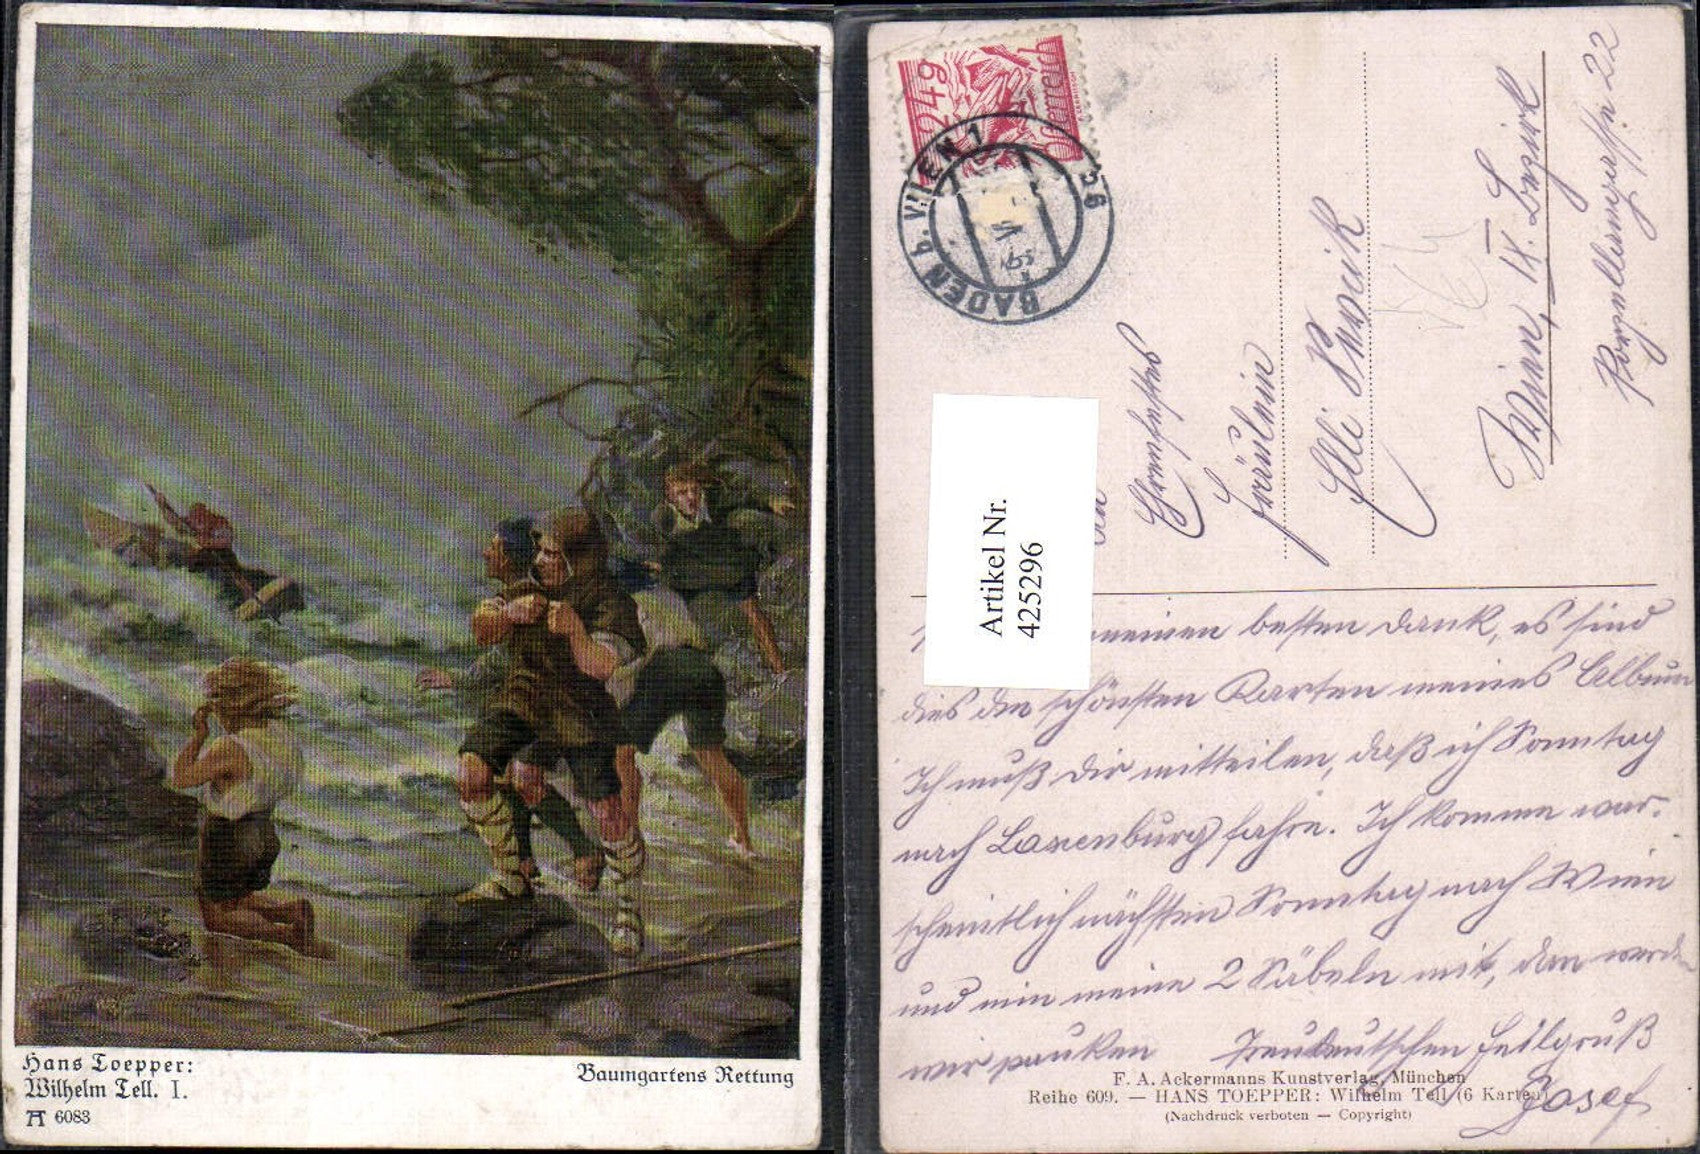 Hans Toepper:
Wilhelm Tell. I.
6083
Baumgartens Rettung
24g
Österreich
BADEN b. WIEN 1
V
Artikel Nr.
425296
Fräulein
Elli
Wien, IX. Bezirk
Porzellangasse 22
meinen besten Dank, es sind
dies die schönsten Karten meines Album
Ich muß dir mitteilen, daß ich Sonntag
nach Laxenburg fahre. Ich komme war-
scheintlich nächsten Sonntag nach Wien
und nim meine 2 Säbeln mit, dan werden
wir pauken Treudeutschen Heilgruß
Josef
F. A. Ackermanns Kunstverlag, München
Reihe 609. — HANS TOEPPER: Wilhelm Tell (6 Karten)
(Nachdruck verboten — Copyright)